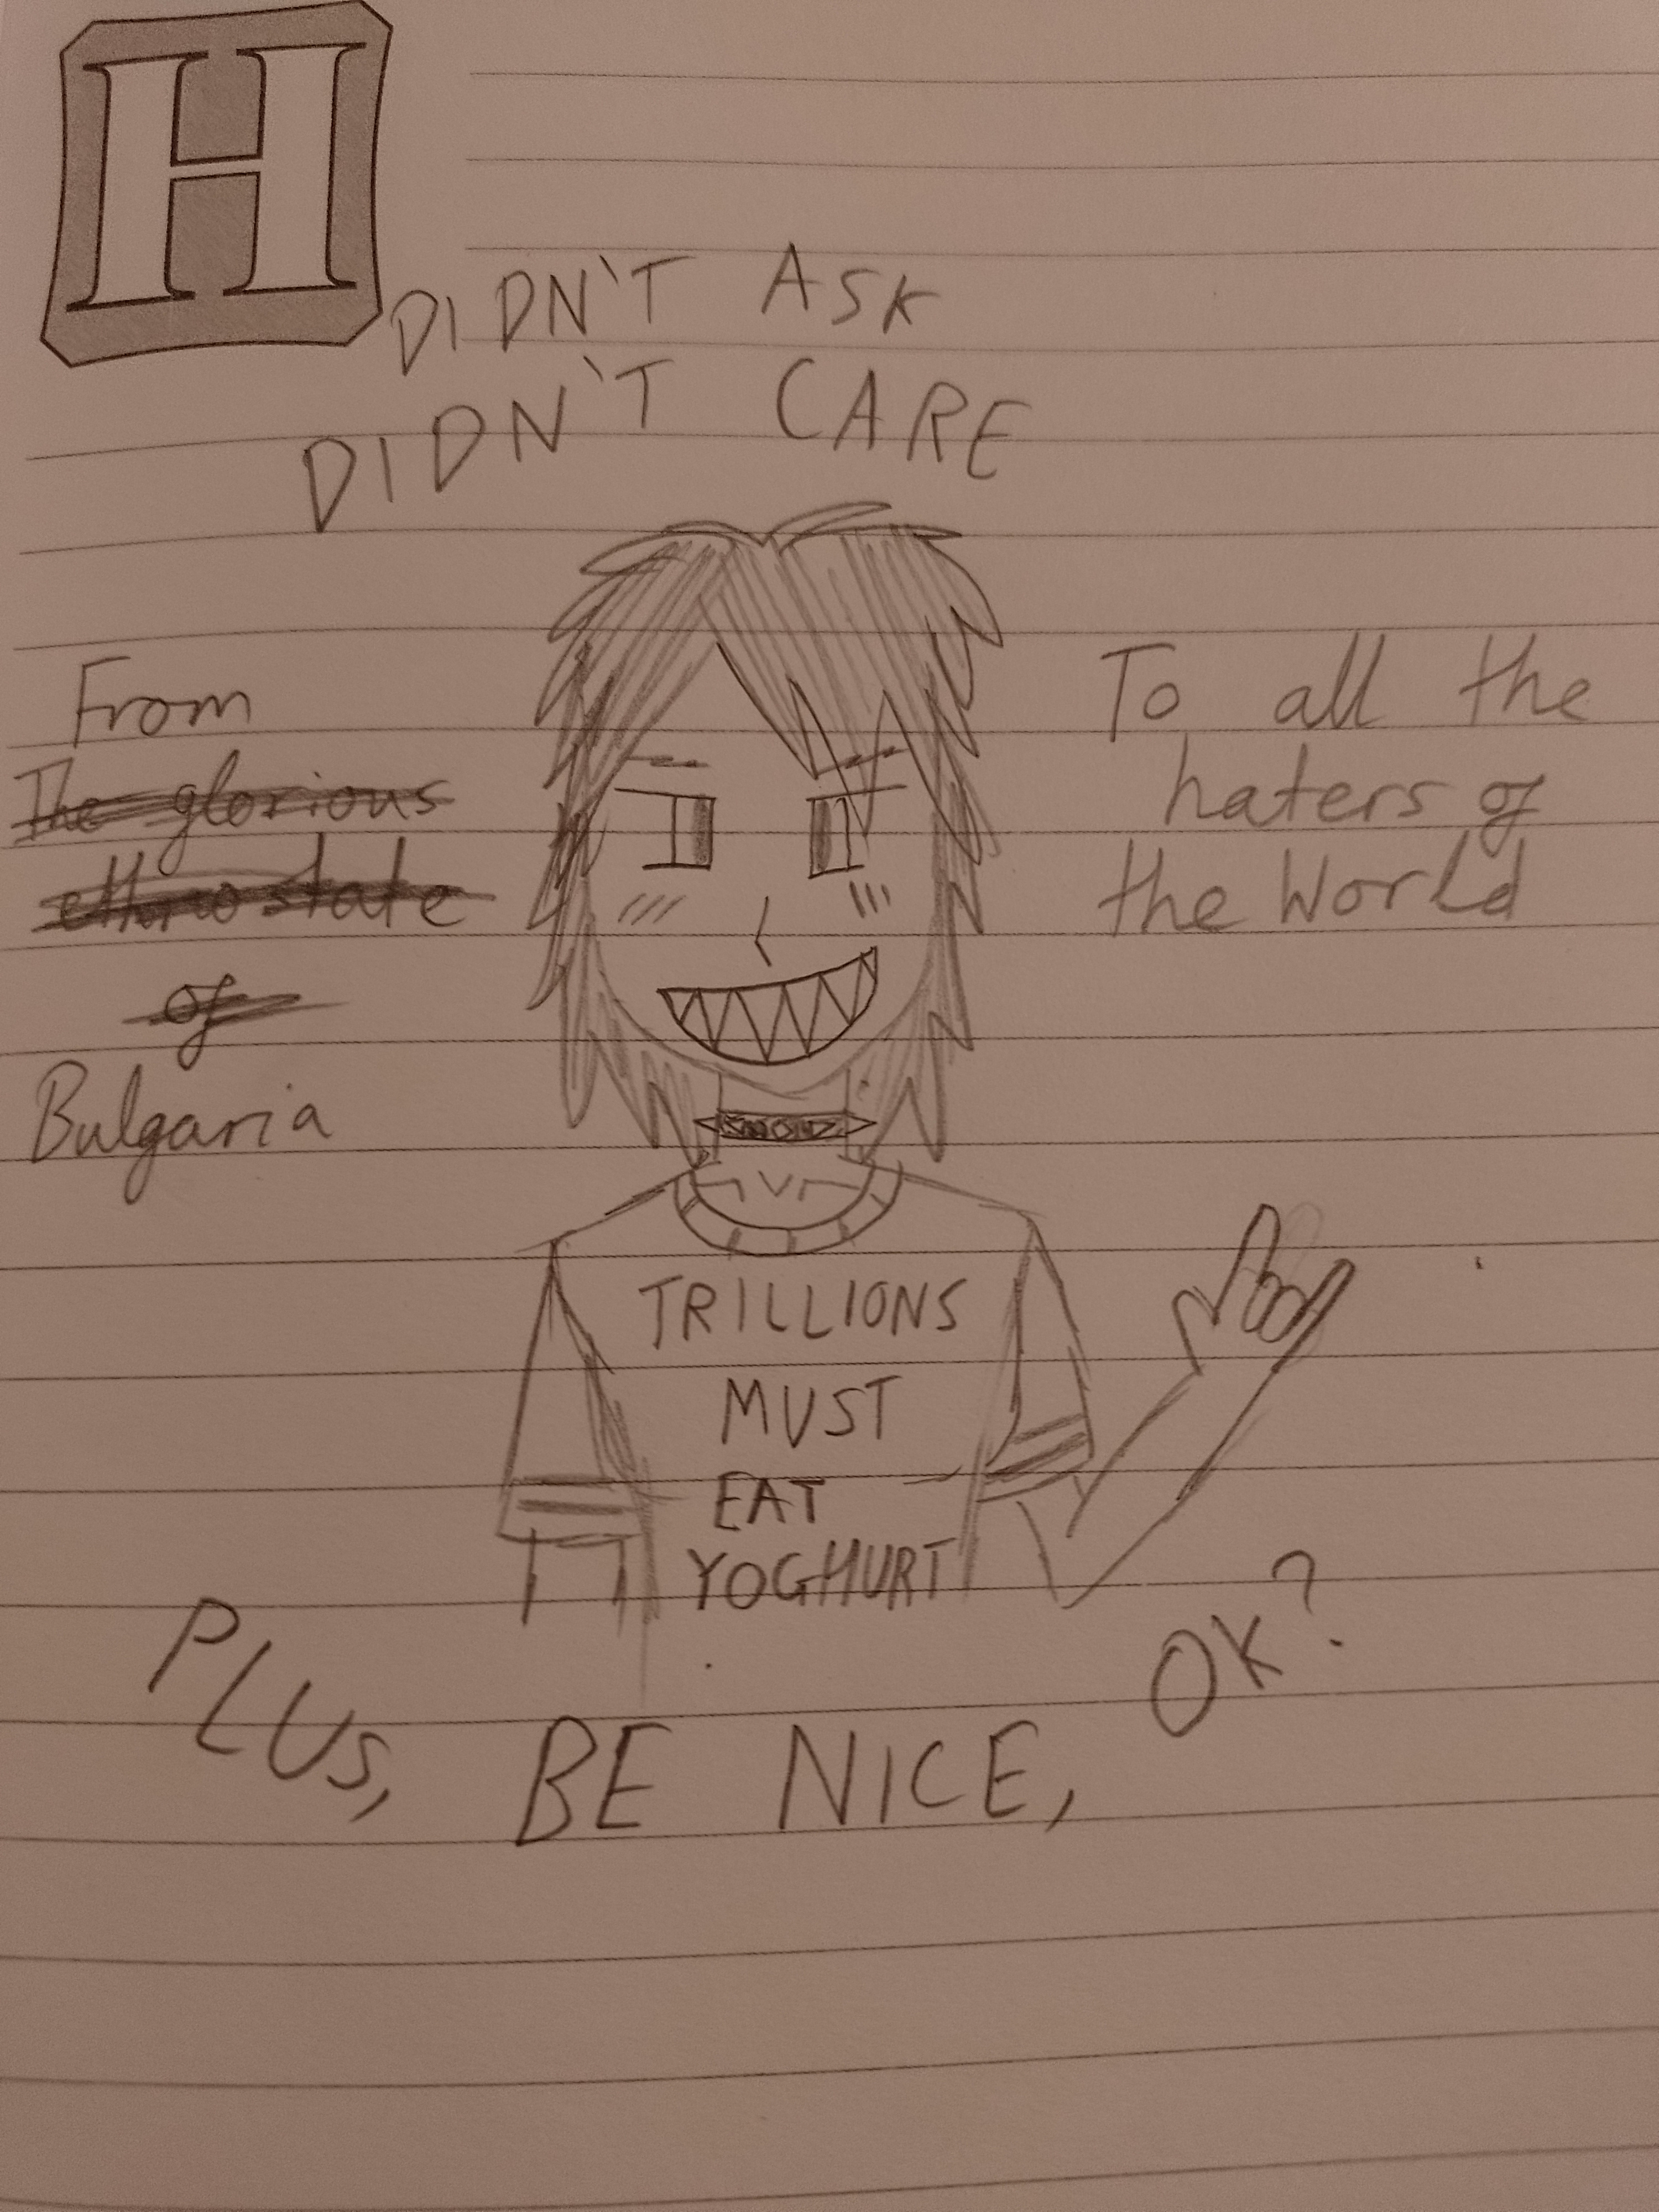 H
DIDN'T ASK
DIDN'T CARE
From
The glorious
ethnostate
of
Bulgaria
To all the
haters of
the World
TRILLIONS
MUST
EAT
YOGHURT
PLUS, BE NICE, OK?